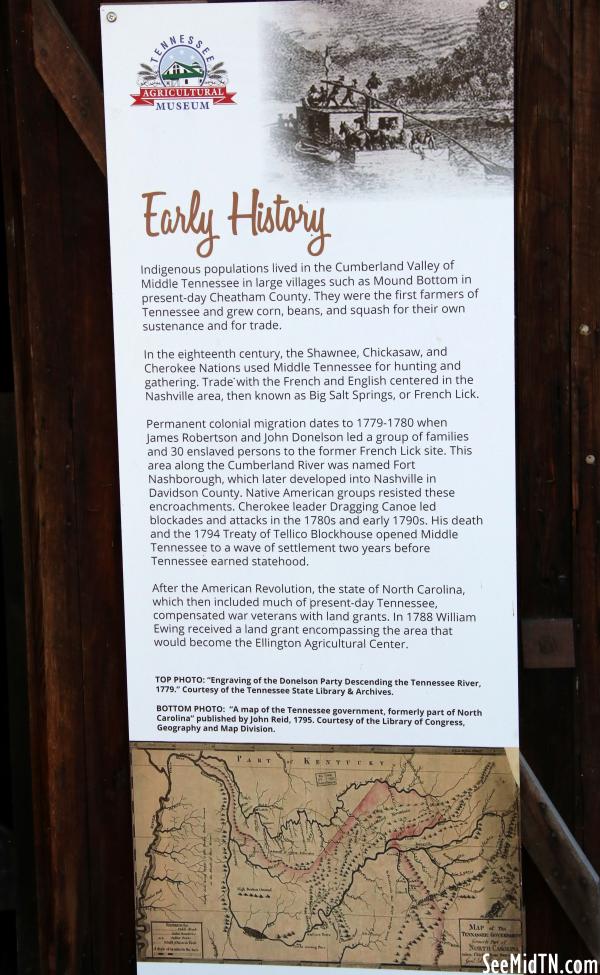 TENNESSEE
AGRICULTURAL
MUSEUM
Early History
Indigenous populations lived in the Cumberland Valley of
Middle Tennessee in large villages such as Mound Bottom in
present-day Cheatham County. They were the first farmers of
Tennessee and grew corn, beans, and squash for their own
sustenance and for trade.
In the eighteenth century, the Shawnee, Chickasaw, and
Cherokee Nations used Middle Tennessee for hunting and
gathering. Trade with the French and English centered in the
Nashville area, then known as Big Salt Springs, or French Lick.
Permanent colonial migration dates to 1779-1780 when
James Robertson and John Donelson led a group of families
and 30 enslaved persons to the former French Lick site. This
area along the Cumberland River was named Fort
Nashborough, which later developed into Nashville in
Davidson County. Native American groups resisted these
encroachments. Cherokee leader Dragging Canoe led
blockades and attacks in the 1780s and early 1790s. His death
and the 1794 Treaty of Tellico Blockhouse opened Middle
Tennessee to a wave of settlement two years before
Tennessee earned statehood.
After the American Revolution, the state of North Carolina,
which then included much of present-day Tennessee,
compensated war veterans with land grants. In 1788 William
Ewing received a land grant encompassing the area that
would become the Ellington Agricultural Center.
TOP PHOTO: "Engraving of the Donelson Party Descending the Tennessee River,
1779." Courtesy of the Tennessee State Library & Archives.
BOTTOM PHOTO: "A map of the Tennessee government, formerly part of North
Carolina" published by John Reid, 1795. Courtesy of the Library of Congress,
Geography and Map Division.
PART of KENTUCKY
MAP of The
TENNESSEE GOVERNMENT
formerly Part of
NORTH CAROLINA
SeeMidTN.com